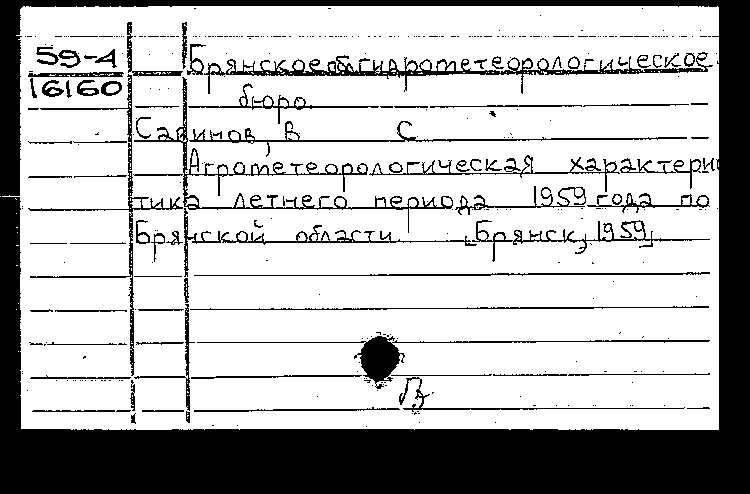 59-4
16160
Брянское обл гидрометеорологическое
бюро.
Савинов, В С
Агрометеорологическая характерис
тика летнего периода 1959 года по
Брянской области [Брянск, 1959]